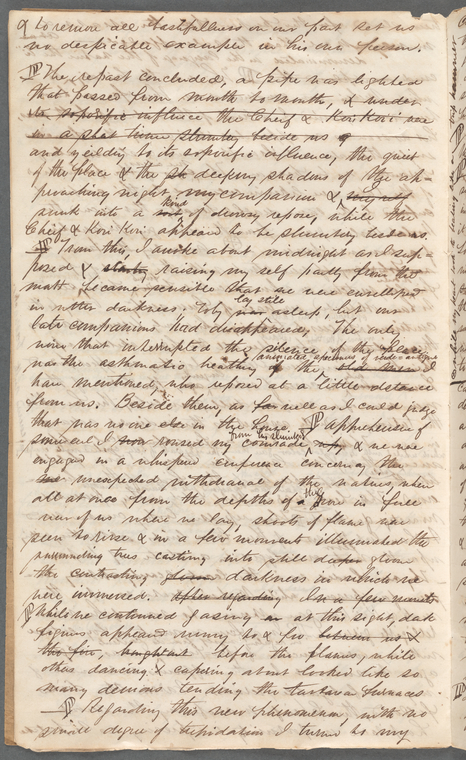 9 to remove all bashfullness on our part set us
no despicable example in his own person.
The repast concluded, a pipe was lighted
that passed from mouth to mouth, & under
its soporific influence the Cheif & Kori Kori were
in a short time slumbg beside us
and yeilding to its soporific influence, the quiet
of the place & the deepeng shadows of the ap-
proaching night, my companion & myself
sunk into a kind of drowsy repose, while the
Cheif & Kori Kori appeared to be slumbg beside us.
From this I awoke about midnight and sup-
posed & raising my self partly from the
matt became sensible that we were envelloped
in utter darkness. Toby lay still was asleep, but our
late companions had disappeared. The only
noise that interrupted the silence of the place
was the asthmatic breathing of the antiquated specimens of I
have mentioned, who reposed at a little distance
from us. Beside them, as far well as I could judge
that was no one else in the house. Apprehensive of
some evil I roused my comrade from his slumbers & we were
engaged in a whisperd conference concerng the
unexpected withdrawal of the natives, when
all at once from the depths of the grove in full
view of us where we lay, shoots of flame were
seen to rise & in a few moments illumined the
surrounding trees casting into still deeper gloom
the contrasting darkness in which we
were immersed. after regarding In a few moments
While we continued gazing on at this sight, dark
figures appeared movng to & fro between us &
the fire, before the flames, while
others dancing & capering about looked like so
many demons tending the tartarean furnaces
Regarding this new phenomenon, with no
small degree of trepidation I turned to my